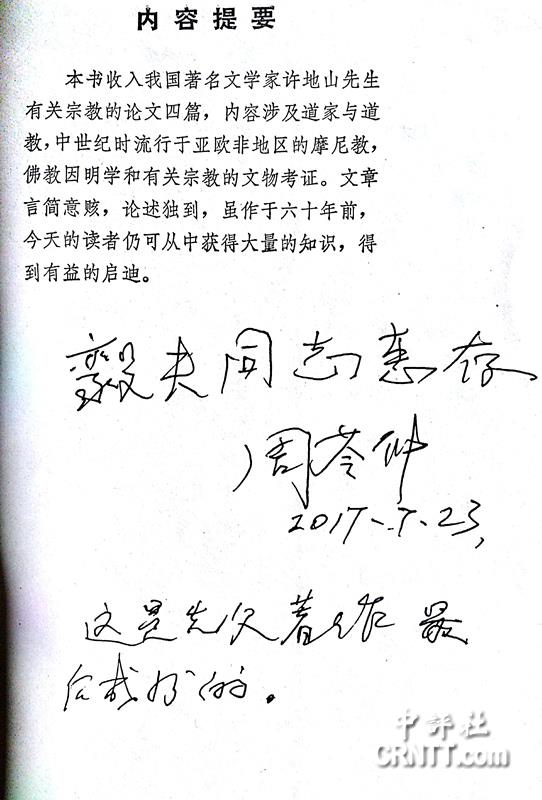 内容提要
本书收入我国著名文学家许地山先生
有关宗教的论文四篇，内容涉及道家与道
教，中世纪时流行于亚欧非地区的摩尼教，
佛教因明学和有关宗教的文物考证。文章
言简意赅，论述独到，虽作于六十年前，
今天的读者仍可从中获得大量的知识，得
到有益的启迪。
毅夫同志惠存
周苓仲
2017.7.23,
这是先父著作最
后
的。
中评社
CRNTT.com